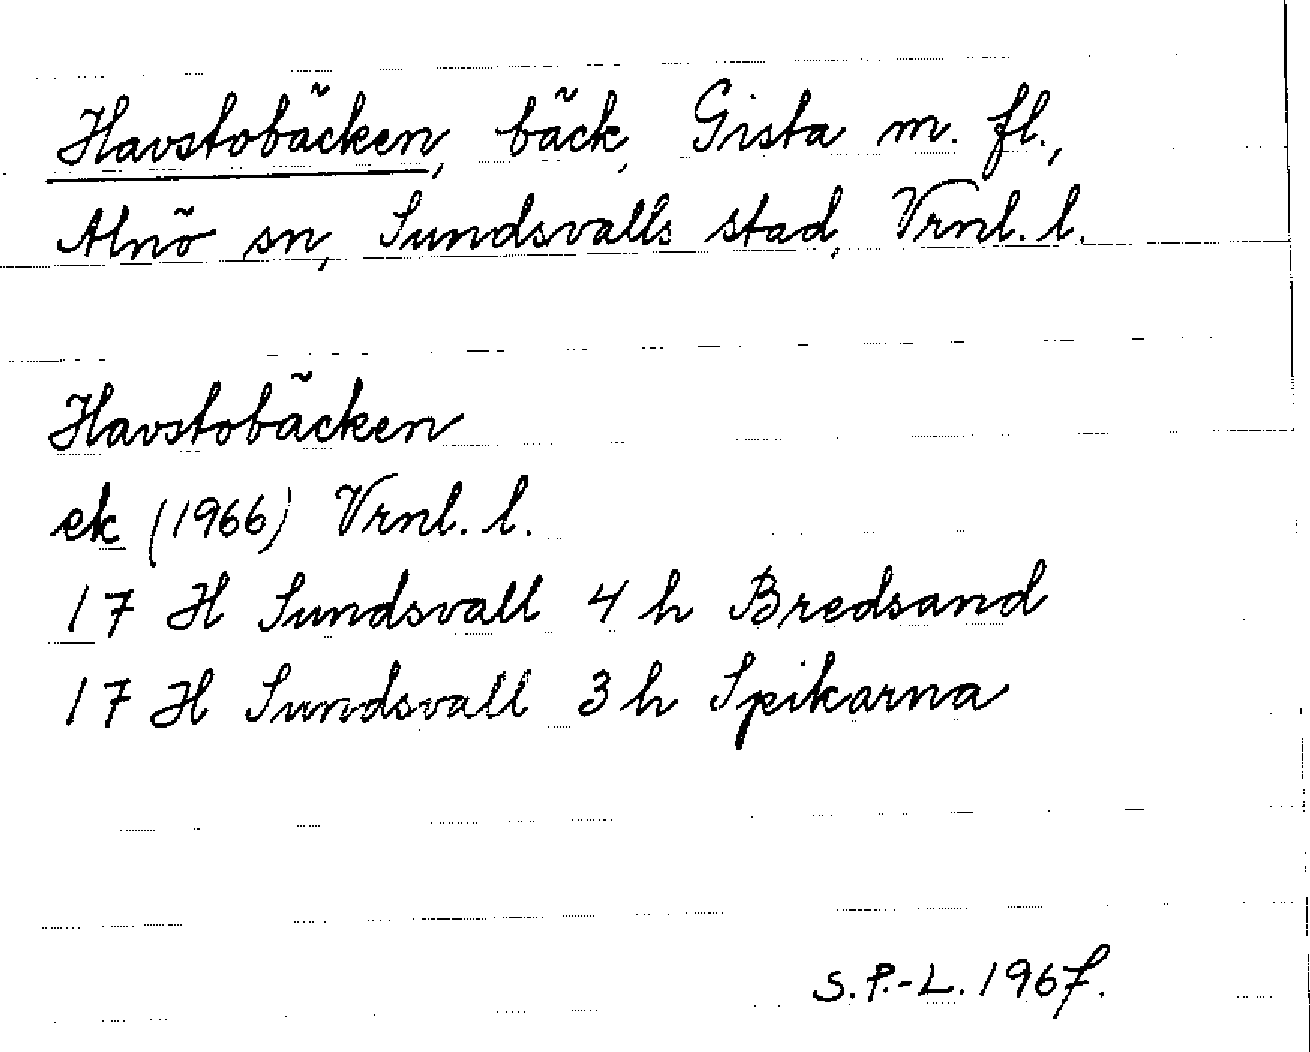 Havstobäcken, bäck, Gista m. fl.,
Alnö sn, Sundsvalls stad, Vrnl. l.
Havstobäcken
ek (1966) Vrnl. l.
17 H Sundsvall 4 h Bredsand
17 H Sundsvall 3 h Spikarna
S.P.-L. 1967.